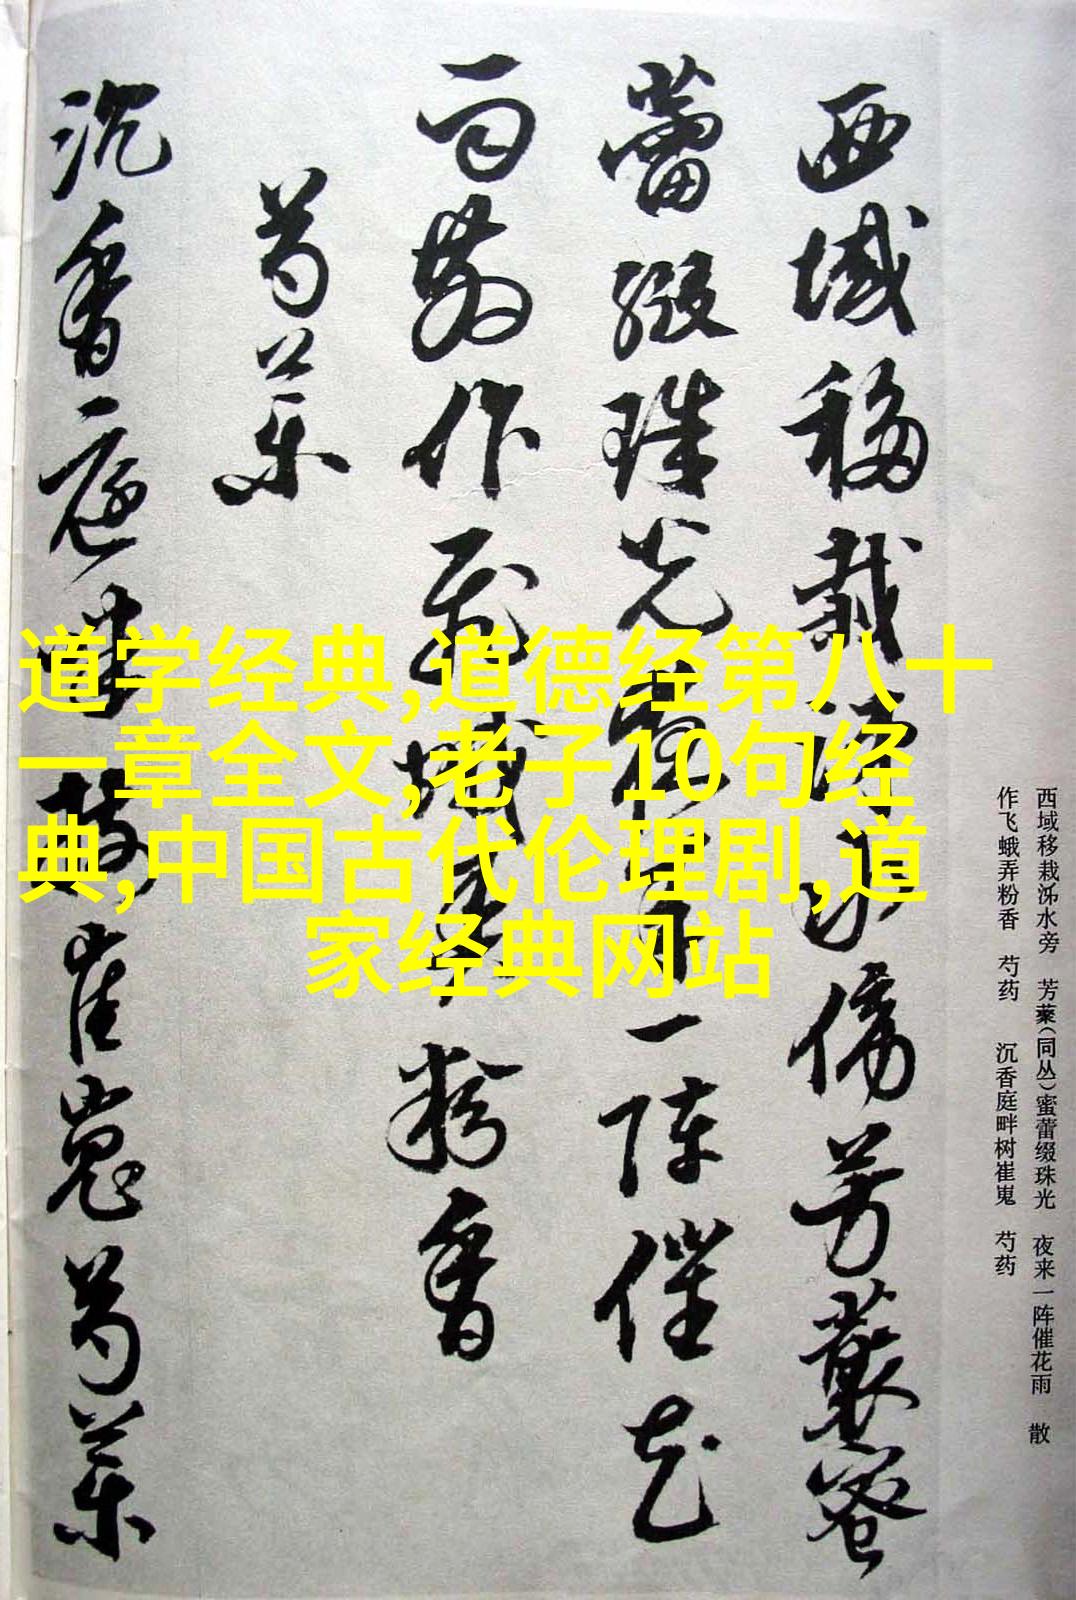 西域移栽泲水傍芳藂蜜
蕾綴珠光夜来一阵催花
雨散作飛蛾弄粉香
芍藥
沉香庭畔樹崔嵬芍藥
西域移栽泲水旁　芳藂(同丛)蜜蕾缀珠光　夜来一阵催花雨　散
作飞蛾弄粉香　芍药　沉香庭畔树崔嵬　芍药
道学经典,道德经第八十
一章全文,老子10句经
典,中国古代伦理剧,道
家经典网站